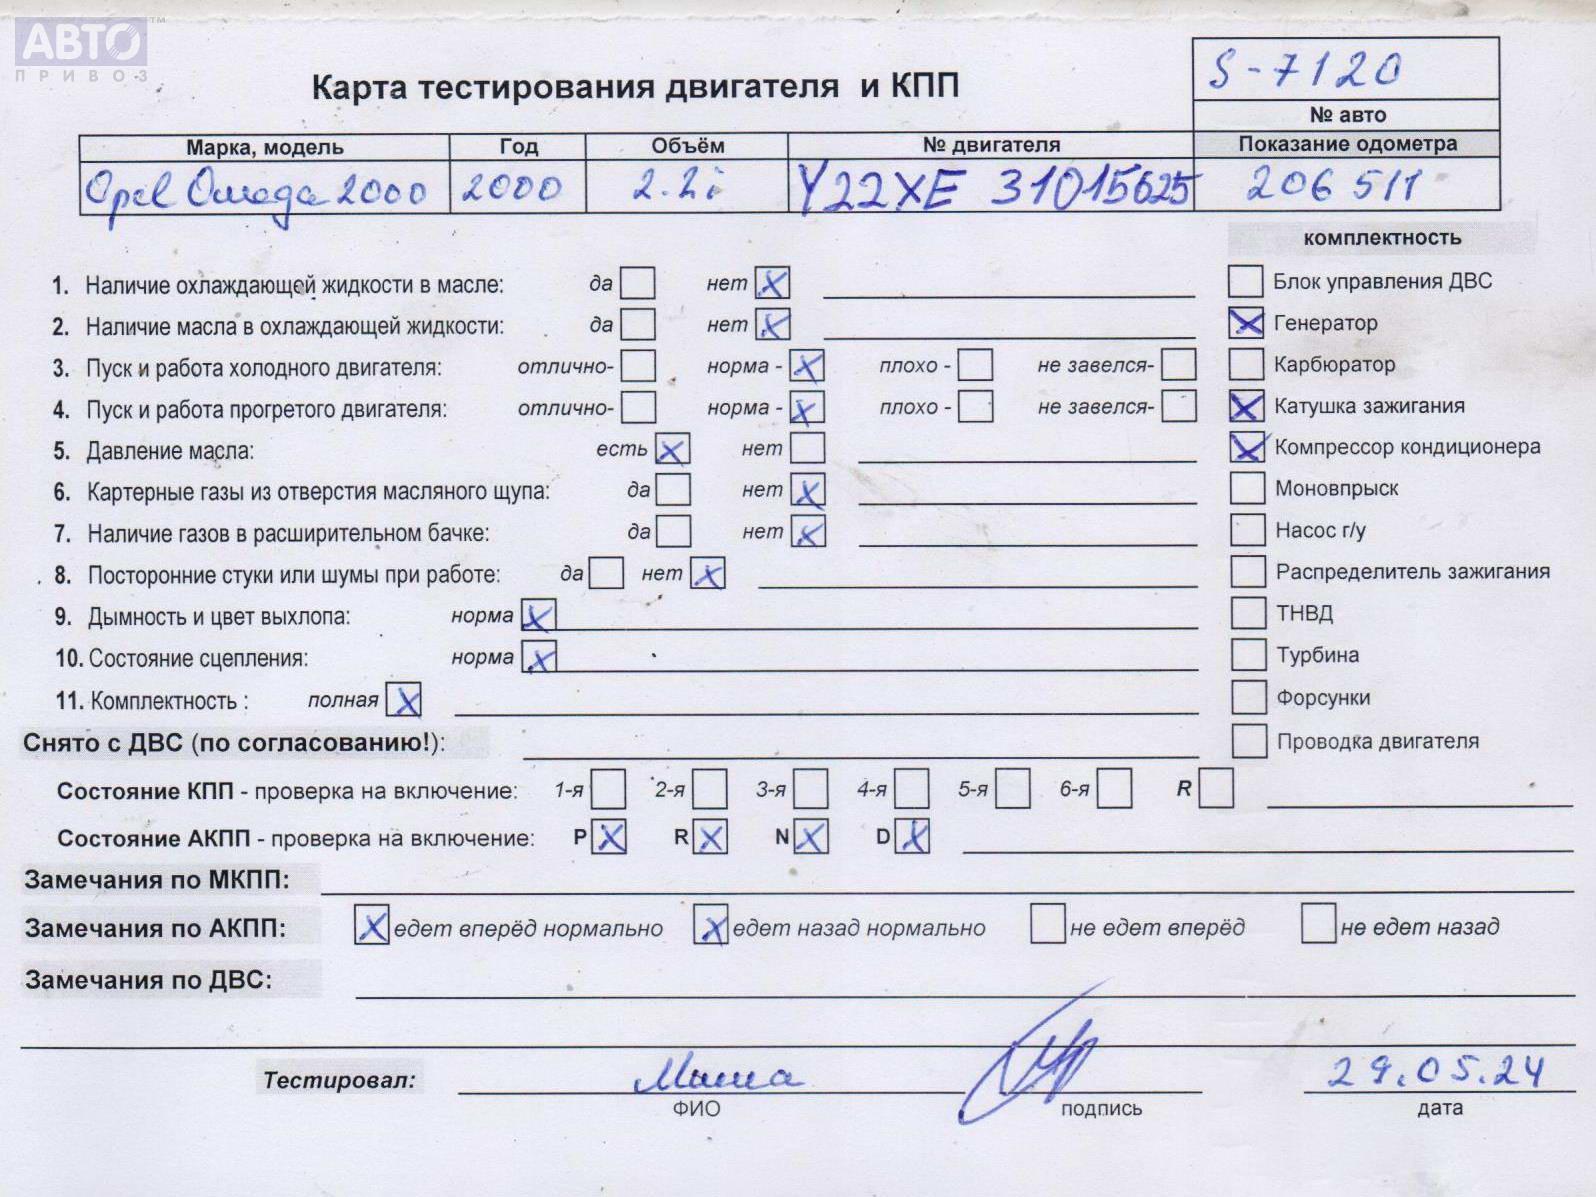 АВТО ™
ПРИВОЗ
S-7120
Карта тестирования двигателя и КПП
№ авто
Марка, модель Год Объём № двигателя Показание одометра
Opel Omega 2000 2000 2.2i Y22XE 31015625 206511
комплектность
1. Наличие охлаждающей жидкости в масле: да нет X
Блок управления ДВС
2. Наличие масла в охлаждающей жидкости: да нет X
X Генератор
3. Пуск и работа холодного двигателя: отлично- норма - X плохо - не завелся-
Карбюратор
4. Пуск и работа прогретого двигателя: отлично- норма - X плохо - не завелся-
X Катушка зажигания
5. Давление масла: есть X нет
X Компрессор кондиционера
6. Картерные газы из отверстия масляного щупа: да нет X
Моновпрыск
7. Наличие газов в расширительном бачке: да нет X
Насос г/у
8. Посторонние стуки или шумы при работе: да нет X
Распределитель зажигания
9. Дымность и цвет выхлопа: норма X
ТНВД
10. Состояние сцепления: норма X
Турбина
11. Комплектность : полная X
Форсунки
Снято с ДВС (по согласованию!):
Проводка двигателя
Состояние КПП - проверка на включение: 1-я 2-я 3-я 4-я 5-я 6-я R
Состояние АКПП - проверка на включение: P X R X N X D X
Замечания по МКПП:
Замечания по АКПП: X едет вперёд нормально X едет назад нормально не едет вперёд не едет назад
Замечания по ДВС:
Тестировал: Миша 29.05.24
ФИО подпись дата